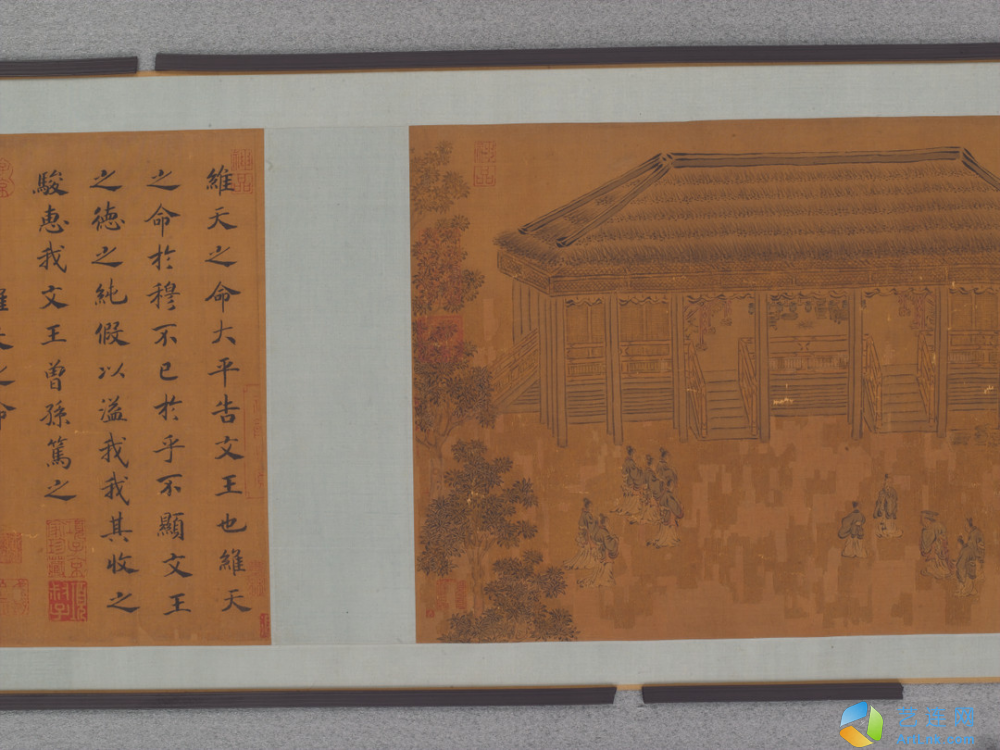 維天之命大平告文王也維天
之命於穆不已於乎不顯文王
之德之純假以溢我我其收之
駿惠我文王曾孫篤之
維天之命